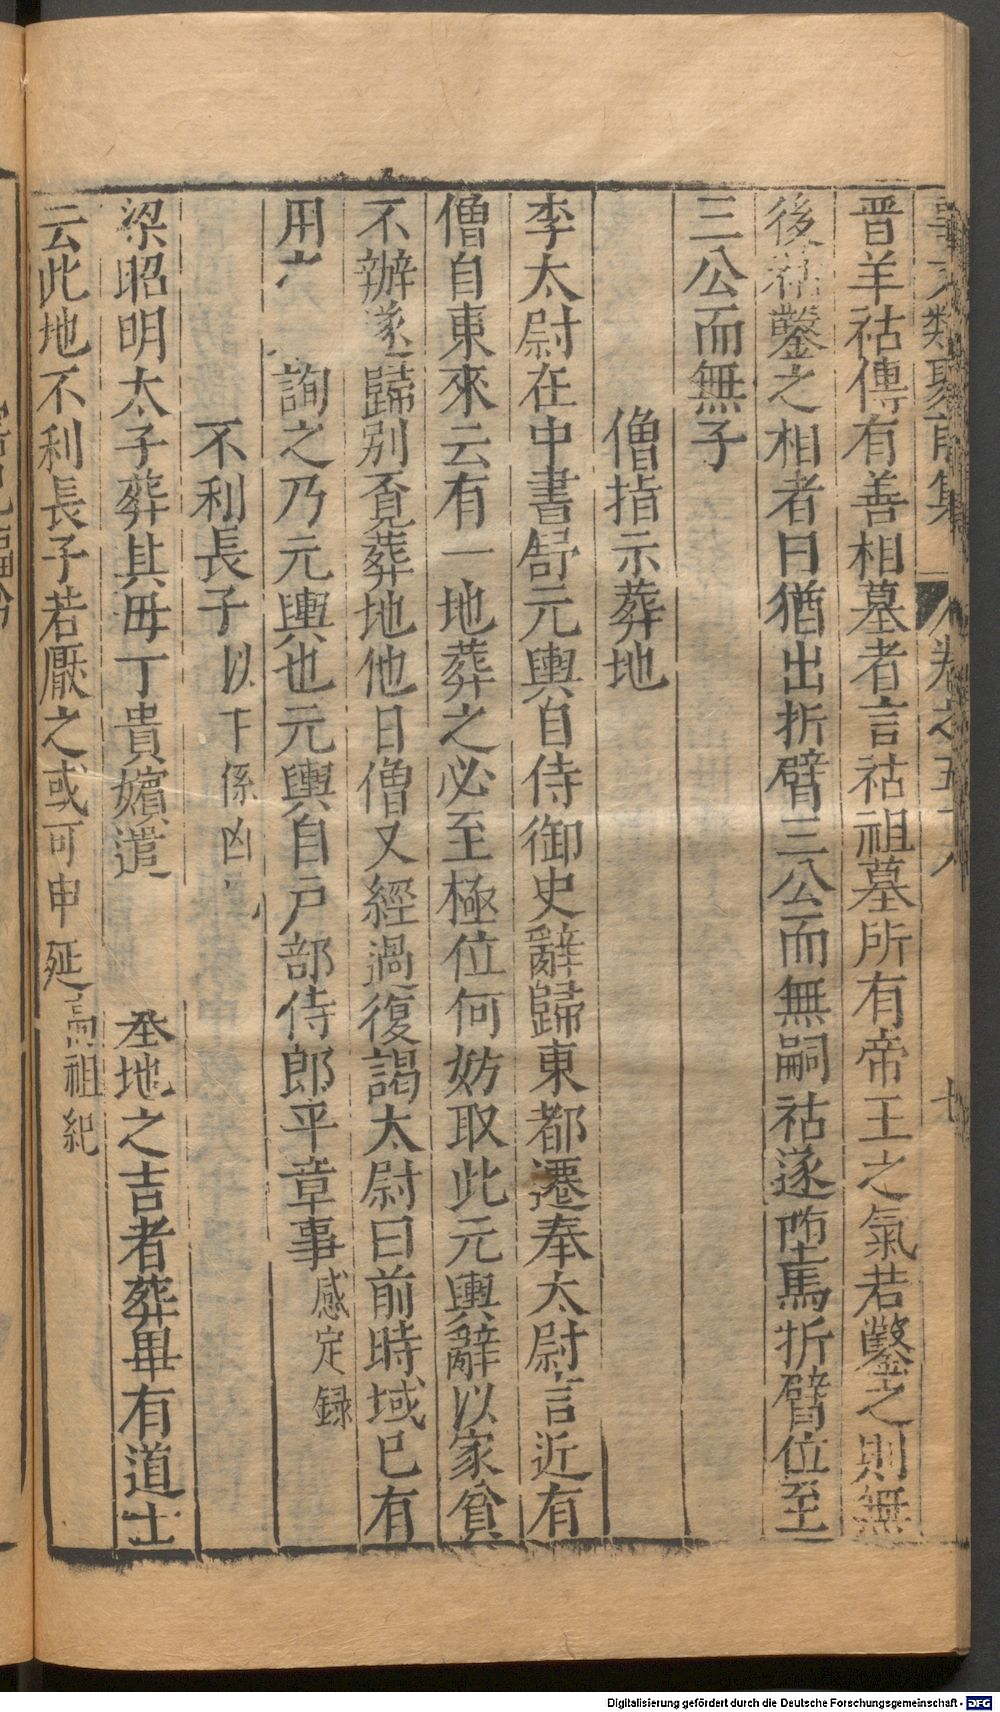 事文類聚前集 卷之五十八 七
晋羊祜傳有善相墓者言祜祖墓所有帝王之氣若鑿之則無
後祜鑿之相者曰猶出折臂三公而無嗣祜遂墮馬折臂位至
三公而無子
僧指示葬地
李太尉在中書舒元輿自侍御史辭歸東都遷奉太尉言近有
僧自東來云有一地葬之必至極位何妨取此元輿辭以家貧
不辦遂歸別覓葬地他日僧又經過復謁太尉曰前時域已有
用 詢之乃元輿也元輿自户部侍郎平章事感定録
不利長子以下係凶
梁昭明太子葬其母丁貴嬪遣 地之吉者葬畢有道士
云此地不利長子若厭之或可申延高祖紀
Digitalisierung gefördert durch die Deutsche Forschungsgemeinschaft - DFG